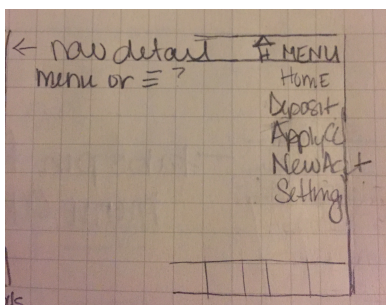 ← nav detail
menu or ☰ ?
MENU
Home
Deposit
Apply CC
New Acct
Setting